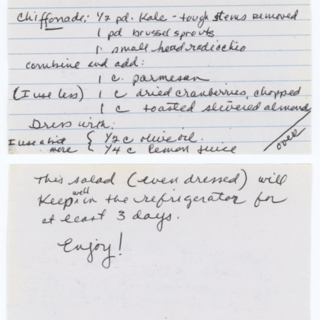 Chiffonade: 1/2 pd. Kale - tough stems removed
1 pd brussel sprouts
1 small head radicchio
combine and add:
1 c. parmesan
(I use less) 1 c dried cranberries, chopped
1 c toasted slivered almond
Dress with:
I use a bit more { 1/2 c olive oil.
{ 1/4 c lemon juice
over
This salad (even dressed) will
keep well in the refrigerator for
at least 3 days.
Enjoy!